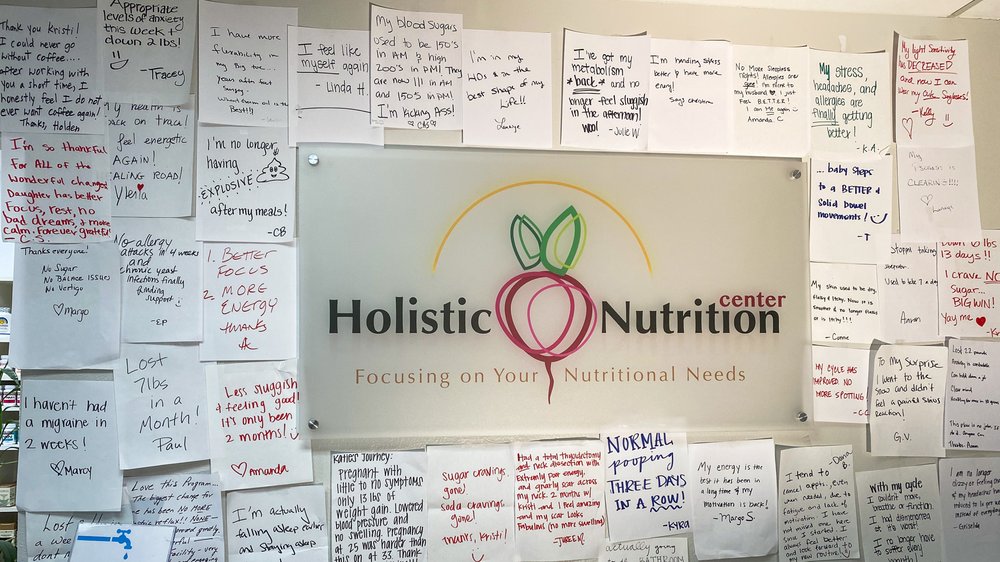 Thank you Kristi!
I could never go
without coffee....
after working with
you a short time, I
honestly feel I do not
ever want coffee again!
Thanks, Holden
Appropriate
levels of anxiety
this week +
down 2 lbs!
-Tracey
I have more
flexibility in
my Big toe...
years after foot
surgery.
I feel like
myself again
Linda H.
My blood sugars
used to be 150's
in AM & high
200's in PM! They
are now 111 in AM
and 150's in PM!
I'm kicking Ass!
I'm in my
40s & in the
best shape of my
Life!!
I've got my
metabolism
*back* and no
longer feel sluggish
in the afternoon!
Woo!
-Julie W
I'm handling stress
better & have more
energy!
No More Sleepless
Nights! Allergies are
gone! I'm nicer to
my husband I just
Feel BETTER!
I am Me again
Amanda C
My stress,
headaches, and
allergies are
finally getting
better!
-K.A.
My light Sensitivity
has DECREASED
and now I can
wear my Cute Sunglasses!
-Kelly
My health is
back on track!
I feel energetic
AGAIN!
HEALING ROAD!
Ylenia
I'm so thankful
For ALL of the
wonderful changes
Daughter has better
Focus, rest, no
bad dreams, & more
calm. Forever grateful
C.S.
I'm no longer
having
EXPLOSIVE
after my meals!
-CB
... baby steps
to a BETTER &
Solid Bowel
movements!
-T
My
CLEARING!!!!
Thanks everyone!
No Sugar
No Balance ISSUES
No Vertigo
Margo
No allergy
attacks in 4 weeks
and
chronic yeast
infections finally
finding
support
-EP
1. BETTER
FOCUS
2. MORE
ENERGY
THANKS
AC
Holistic Nutrition
center
Focusing on Your Nutritional Needs
My skin used to be dry,
flaky & itchy. Now it is
smoother & no longer flakes
or is itchy!!!
-Connie
Stopped taking
Down 6 lbs
13 days!!
I crave NO
Sugar...
BIG WIN!
Yay me
I haven't had
a migraine in
2 weeks!
Marcy
Lost
7lbs
in a
Month!
Paul
Less sluggish
& feeling good!
It's only been
2 months!
Amanda
MY CYCLE HAS
IMPROVED NO
MORE SPOTTING!
-CC
To My Surprise
I went to the
Snow and didn't
feel a painful Sinus
Reaction!
G.V.
Lost 22 pounds
Clear mind
Love this Program...
The biggest change for
me has been NO MORE
acid reflux! NONE
Lost
a week
don't
I'm actually
falling asleep earlier
and staying asleep
Katie's Journey:
Pregnant with
little to no symptoms
Only 15 lbs of
weight gain. Lowered
blood pressure and
no swelling. Pregnancy
at 25 was harder than
this on at 33. Thank
Sugar cravings,
gone!
soda cravings,
gone!
Thanks, Kristi!
Had a total thyroidectomy
and neck dissection with
Extremely poor energy,
and gnarly scar across
my neck. 2 months w/
Kristi and I feel amazing
and my scar looks
Fabulous (no more swelling)
NORMAL
pooping
THREE DAYS
IN A ROW!
-KYRA
actually going
BATHROOM
My energy is the
best it has been in
a long time & my
Motivation is back!
-Margo S
I tend to
cancel appts., even
when needed, due to
fatigue and lack of
motivation. I have
not missed one here
since I started. I
always feel better
and look forward to
my new routine!
-Dana
B.
With my cycle
I couldn't move,
breathe or function.
I had
at it's worst.
I no longer have
to suffer every
month!
I am no longer
-Griselda